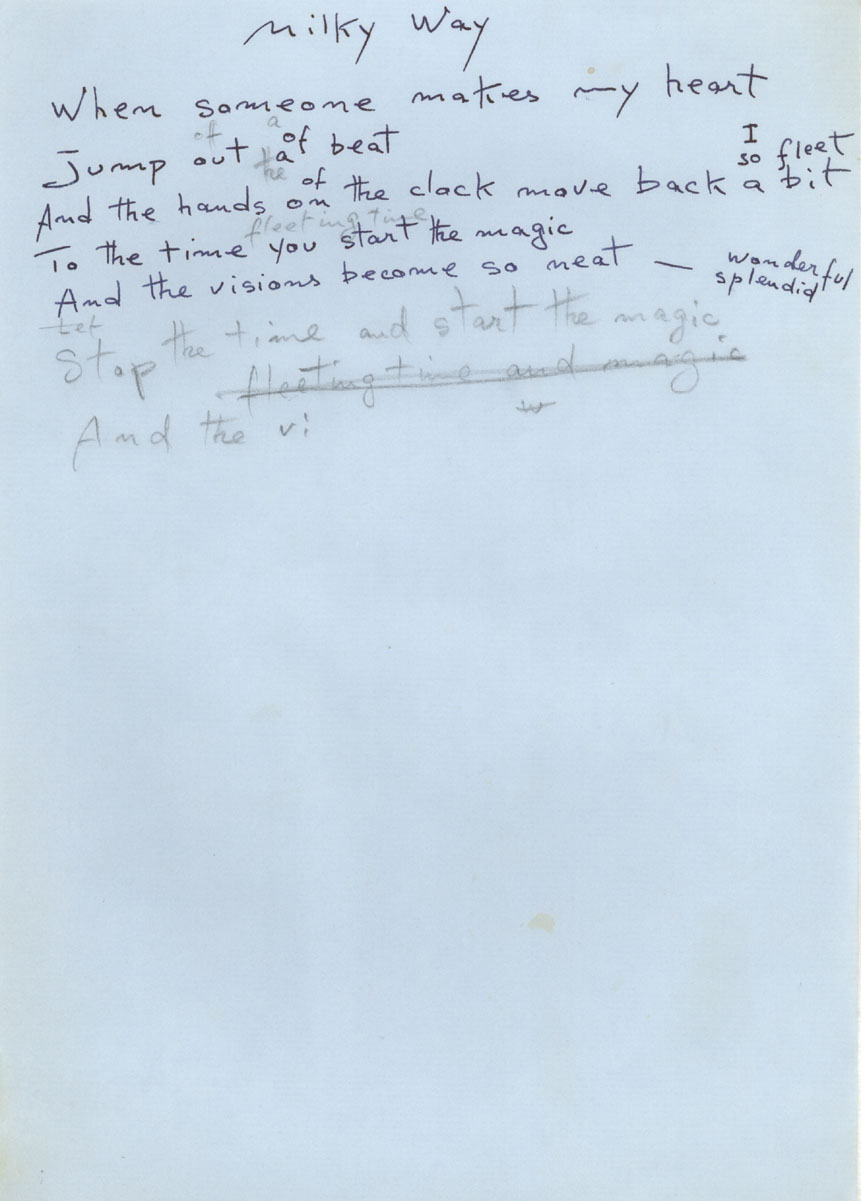 Milky Way
When someone makes my heart
of a
Jump out a of beat
the
I
so fleet
And the hands on of the clock move back a bit
fleeting time
To the time you start the magic
And the visions become so neat — wonderful
splendid
Let
Stop the time and start the magic
fleeting time and magic
w
And the vi